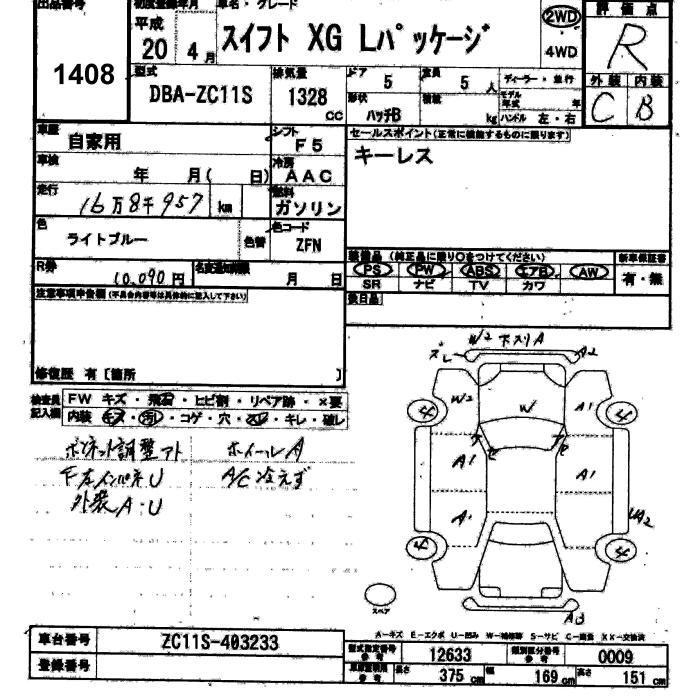 出品番号
1408
初度登録年月
平成
20 4月
車名・グレード
スイフト XG Lパッケージ
2WD
4WD
評価点
R
外装 内装
C B
型式
DBA-ZC11S
排気量
1328
CC
ドア
5
定員
5 人
形状
ハッチB
積載
kg
ディーラー・並行
モデル年式 年
ハンドル 左・右
車歴
自家用
シフト
F5
車検
年 月( 日)
冷房
AAC
走行
16万8千957 km
燃料
ガソリン
色
ライトブルー
色替
色コード
ZFN
R券
10,090円
名変通知期限
月 日
セールスポイント(正常に機能するものに限ります)
キーレス
装備品 (純正品に限り○をつけてください)
PS PW ABS エアB AW
SR ナビ TV カワ
新車保証書
有・無
後日品
注意事項申告欄(不具合内容等は具体的に記入して下さい)
修復歴 有〔箇所 〕
検査員記入欄
FW キズ・飛石・ヒビ割・リペア跡・×要
内装 キズ・汚レ・コゲ・穴・スレ・キレ・破レ
ボンネット調整アト
ホイールA
F左インパネU
A/C冷えず
外装A・U
W2 下スリA
ズレ
A2
W2
W
A1
A1
A1
A1
A1
UA2
AB
スペア
A-キズ E-エクボ U-凹み W-補修跡 S-サビ C-腐食 XX-交換済
車台番号
ZC11S-403233
登録番号
型式指定番号 参考
12633
類別区分番号 参考
0009
長さ 375 cm
幅 169 cm
高さ 151 cm